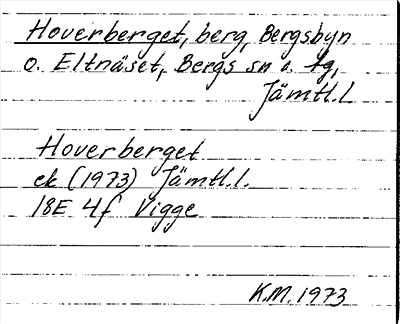 Hoverberget, berg, Bergsbyn
o. Eltnäset, Bergs sn o. tg,
Jämtl.l
Hoverberget
ek (1973) Jämtl.l.
18E 4f Vigge
K.M. 1973